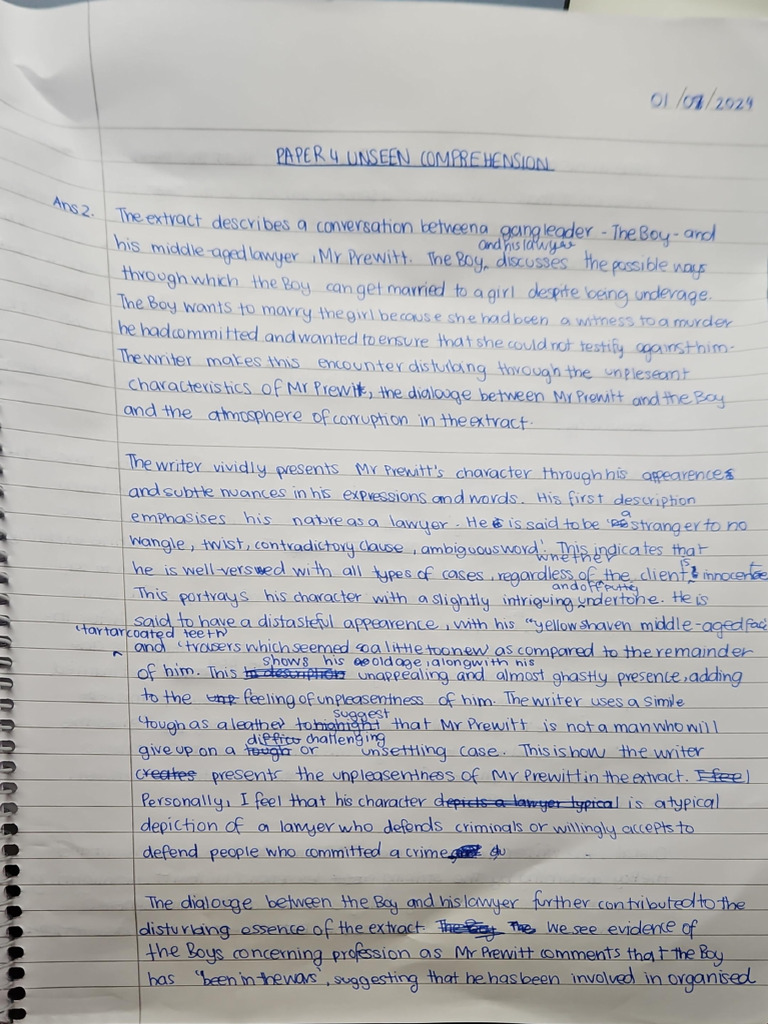 01/07/2024
PAPER 4 UNSEEN COMPREHENSION
Ans 2. The extract describes a conversation between a gang leader - The Boy - and
his middle-aged lawyer, Mr Prewitt. The Boy, and his lawyer discusses the possible ways
through which the Boy can get married to a girl despite being underage.
The Boy wants to marry the girl because she had been a witness to a murder
he had committed and wanted to ensure that she could not testify against him.
The writer makes this encounter disturbing through the unpleseant
characteristics of Mr Prewitt, the dialouge between Mr Prewitt and the Boy
and the atmosphere of corruption in the extract.
The writer vividly presents Mr Prewitt's character through his appearences
and subtle nuances in his expressions and words. His first description
emphasises his nature as a lawyer. He is said to be 'a stranger to no
wangle, twist, contradictory clause, ambiguous word'. This indicates that
he is well-versed with all types of cases, regardless of whether the client is innocent
This portrays his character with a slightly intriguing and offputting undertone. He is
said to have a distasteful appearence, with his "yellow shaven middle-aged face
'tartar coated teeth'
and 'trousers which seemed a little too new as compared to the remainder
of him. This shows his old age, along with his unappealing and almost ghastly presence, adding
to the feeling of unpleasentness of him. The writer uses a simile
'tough as a leather' to suggest that Mr Prewitt is not a man who will
give up on a challenging or unsettling case. This is how the writer
creates presents the unpleasentness of Mr Prewitt in the extract. I feel
Personally, I feel that his character depicts a lawyer typical is a typical
depiction of a lawyer who defends criminals or willingly accepts to
defend people who committed a crime
The dialouge between the Boy and his lawyer further contributed to the
disturbing essence of the extract. The Boy The we see evidence of
the Boys concerning profession as Mr Prewitt comments that the Boy
has 'been in the wars', suggesting that he has been involved in organised